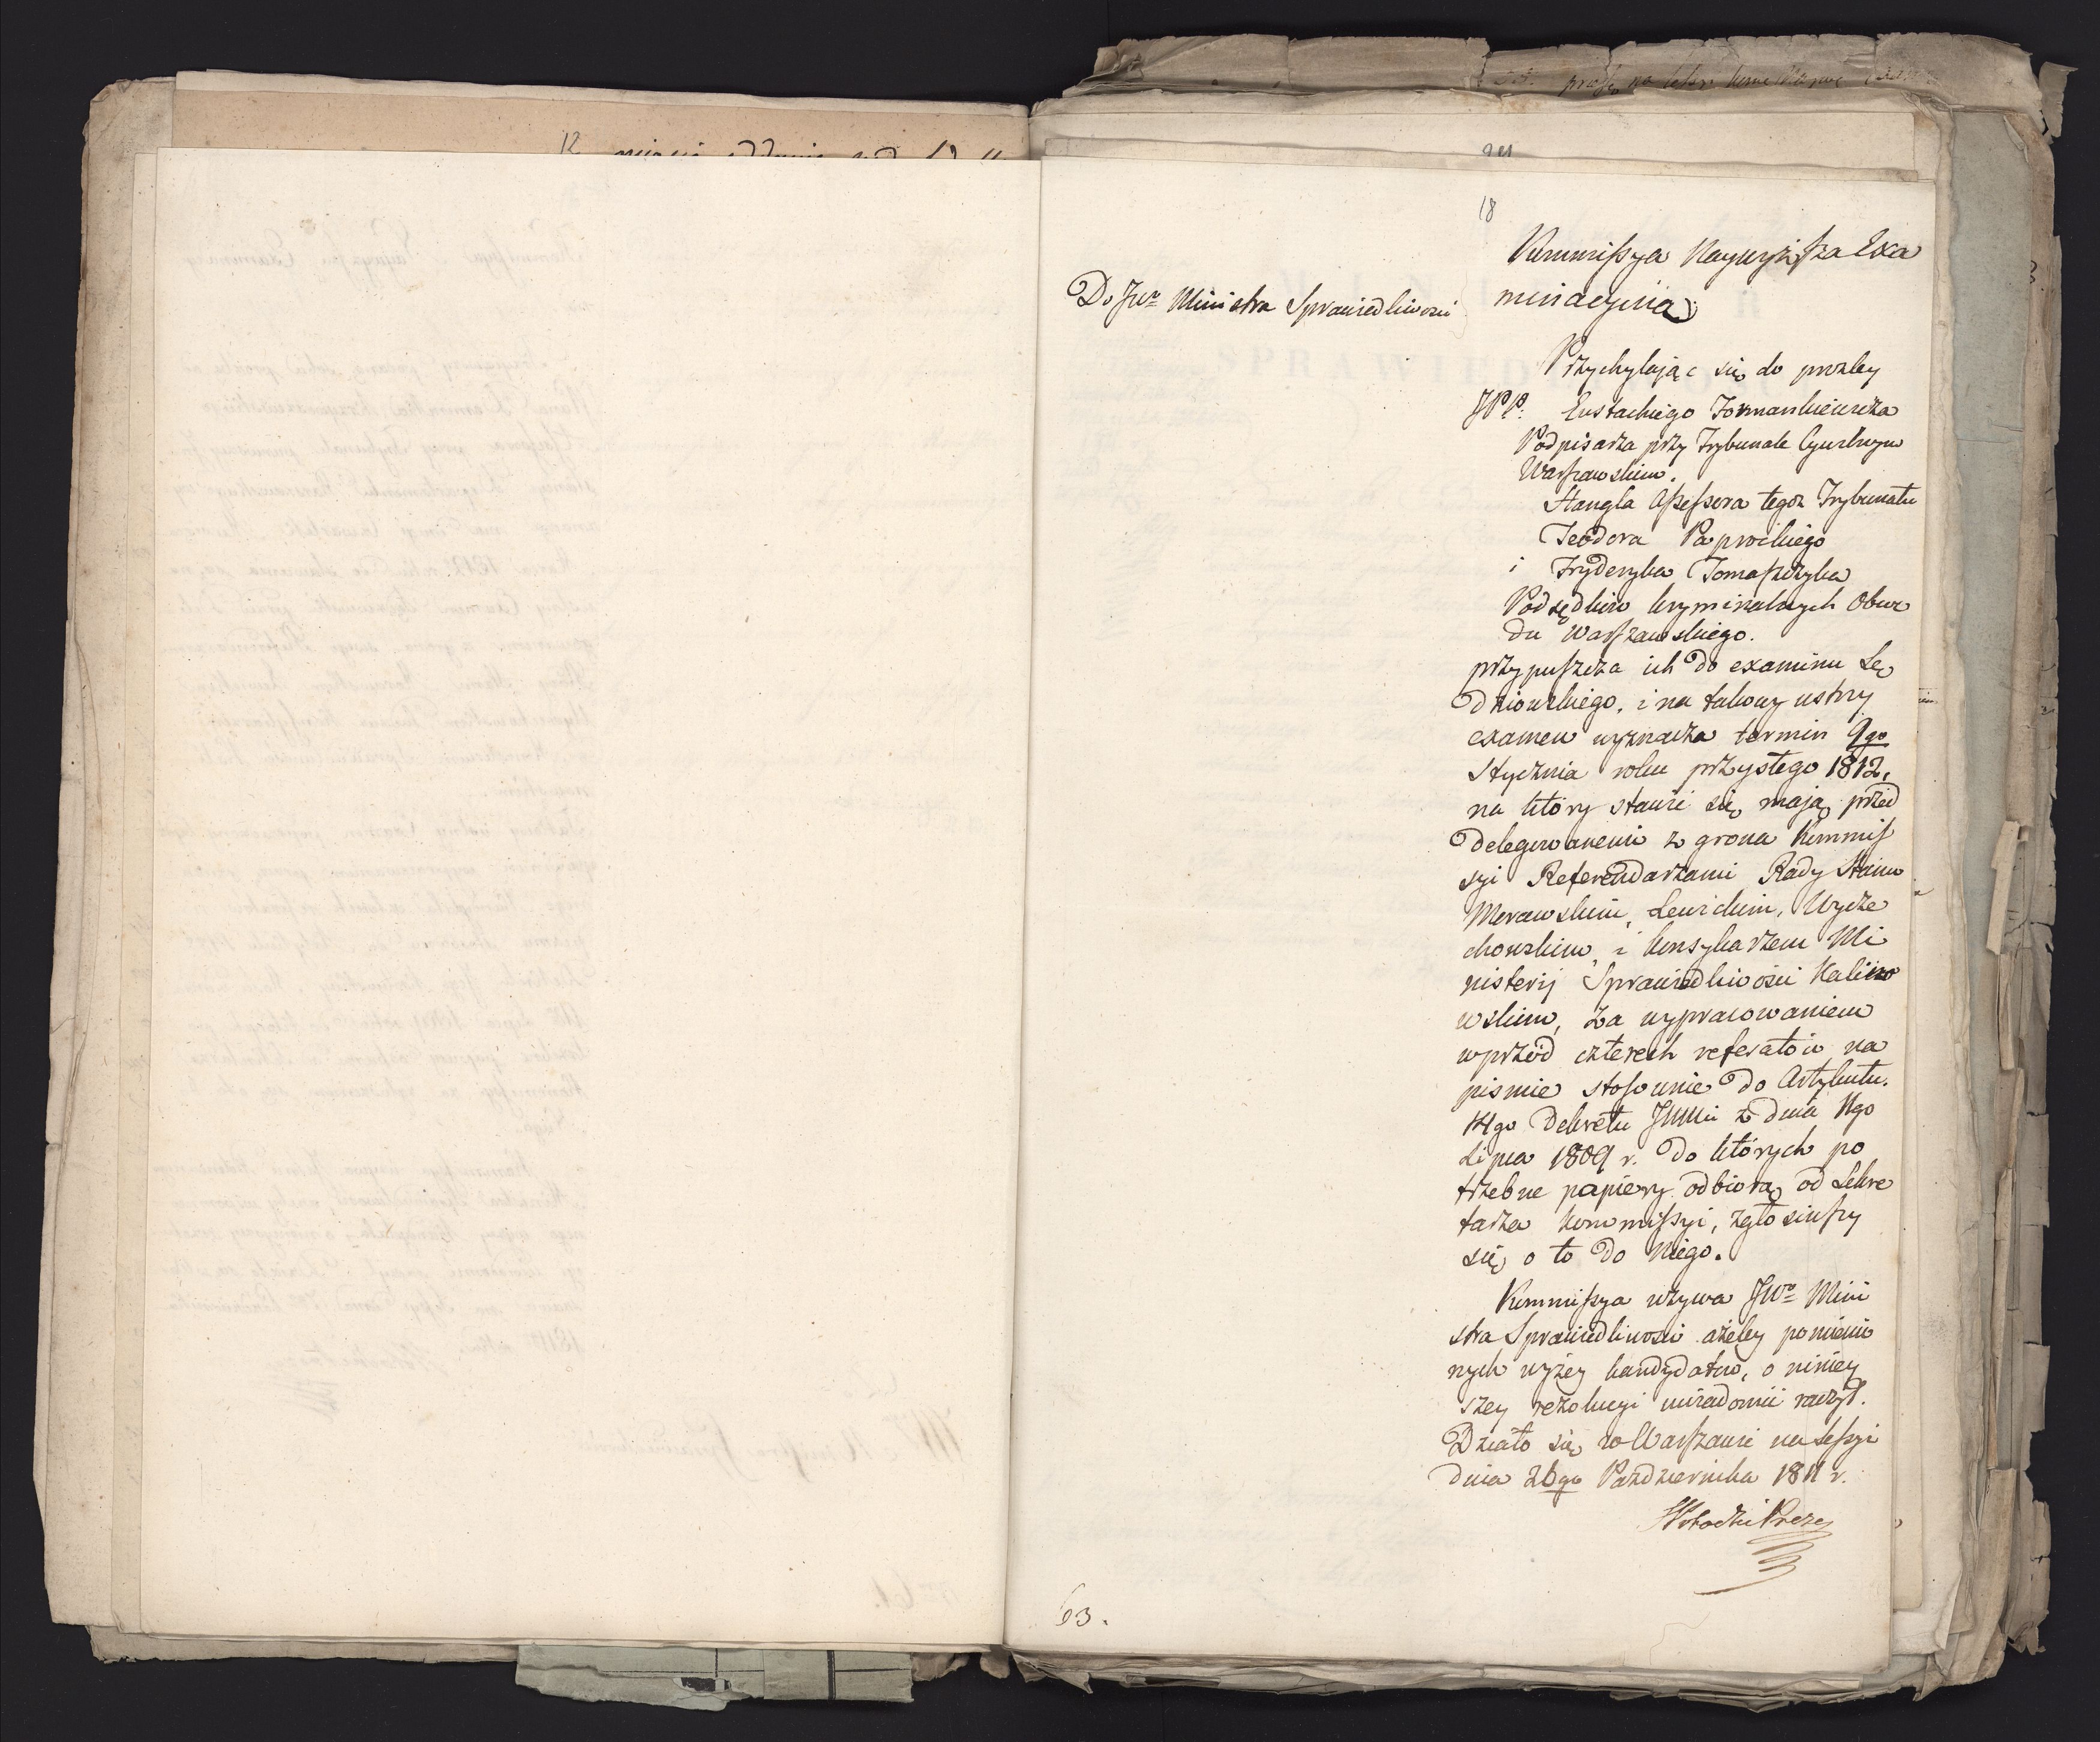 12
18
Kommissya Naywyższa Exa
minacyjna
Do JWo Ministra Sprawiedliwości
Przychylając się do prozby
JPP. Eustachiego Tormankiewicza
Podpisarza przy Trybunale Cywilnym
Warszawskim.
Stangla Assessora tegoż Trybunału
Teodora Paprockiego
i Fryderyka Tomaszczyka
Podsędków kryminalnych Obwo
du Warszawskiego.
przypuszcza ich do examinu Sę
dziowskiego, i na takowy ustny
examen wyznacza termin 9go
Stycznia roku przyszłego 1812,
na który stawić się mają przed
Delegowanemi z grona Kommis
syi Referendarzami Rady Stanu
Morawskim, Lewickim, Wycze
chowskim, i konsyliarzem Mi
nisterij Sprawiedliwości Kalino
wskim, za wypracowaniem
wprzód czterech referatów na
piśmie stosownie do Artykułu.
14go Dekretu JKMci z dnia 11go
Lipca 1809 r. do których po
trzebne papiery odbiorą od Sekre
tarza Kommissyi, zgłosiwszy
się o to do niego.
Kommissya wzywa JWo Mini
stra Sprawiedliwości ażeby pomienio
nych wyżey kandydatów, o niniey
szey rezolucyi uwiadomić raczył.
Działo się w Warszawie na Sessyi
dnia 26go Października 1811 r.
63.